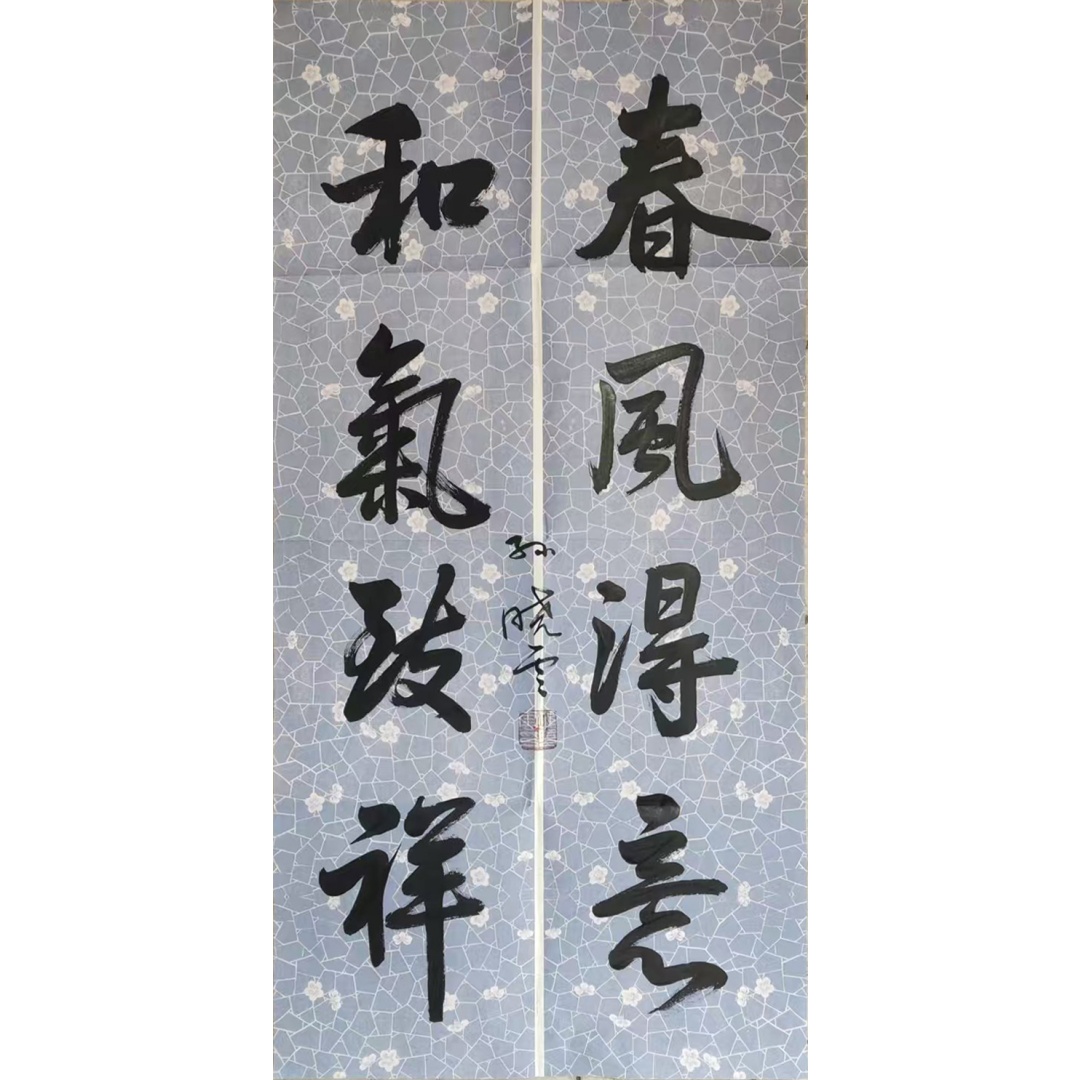 春風得意
和氣致祥
孙晓云